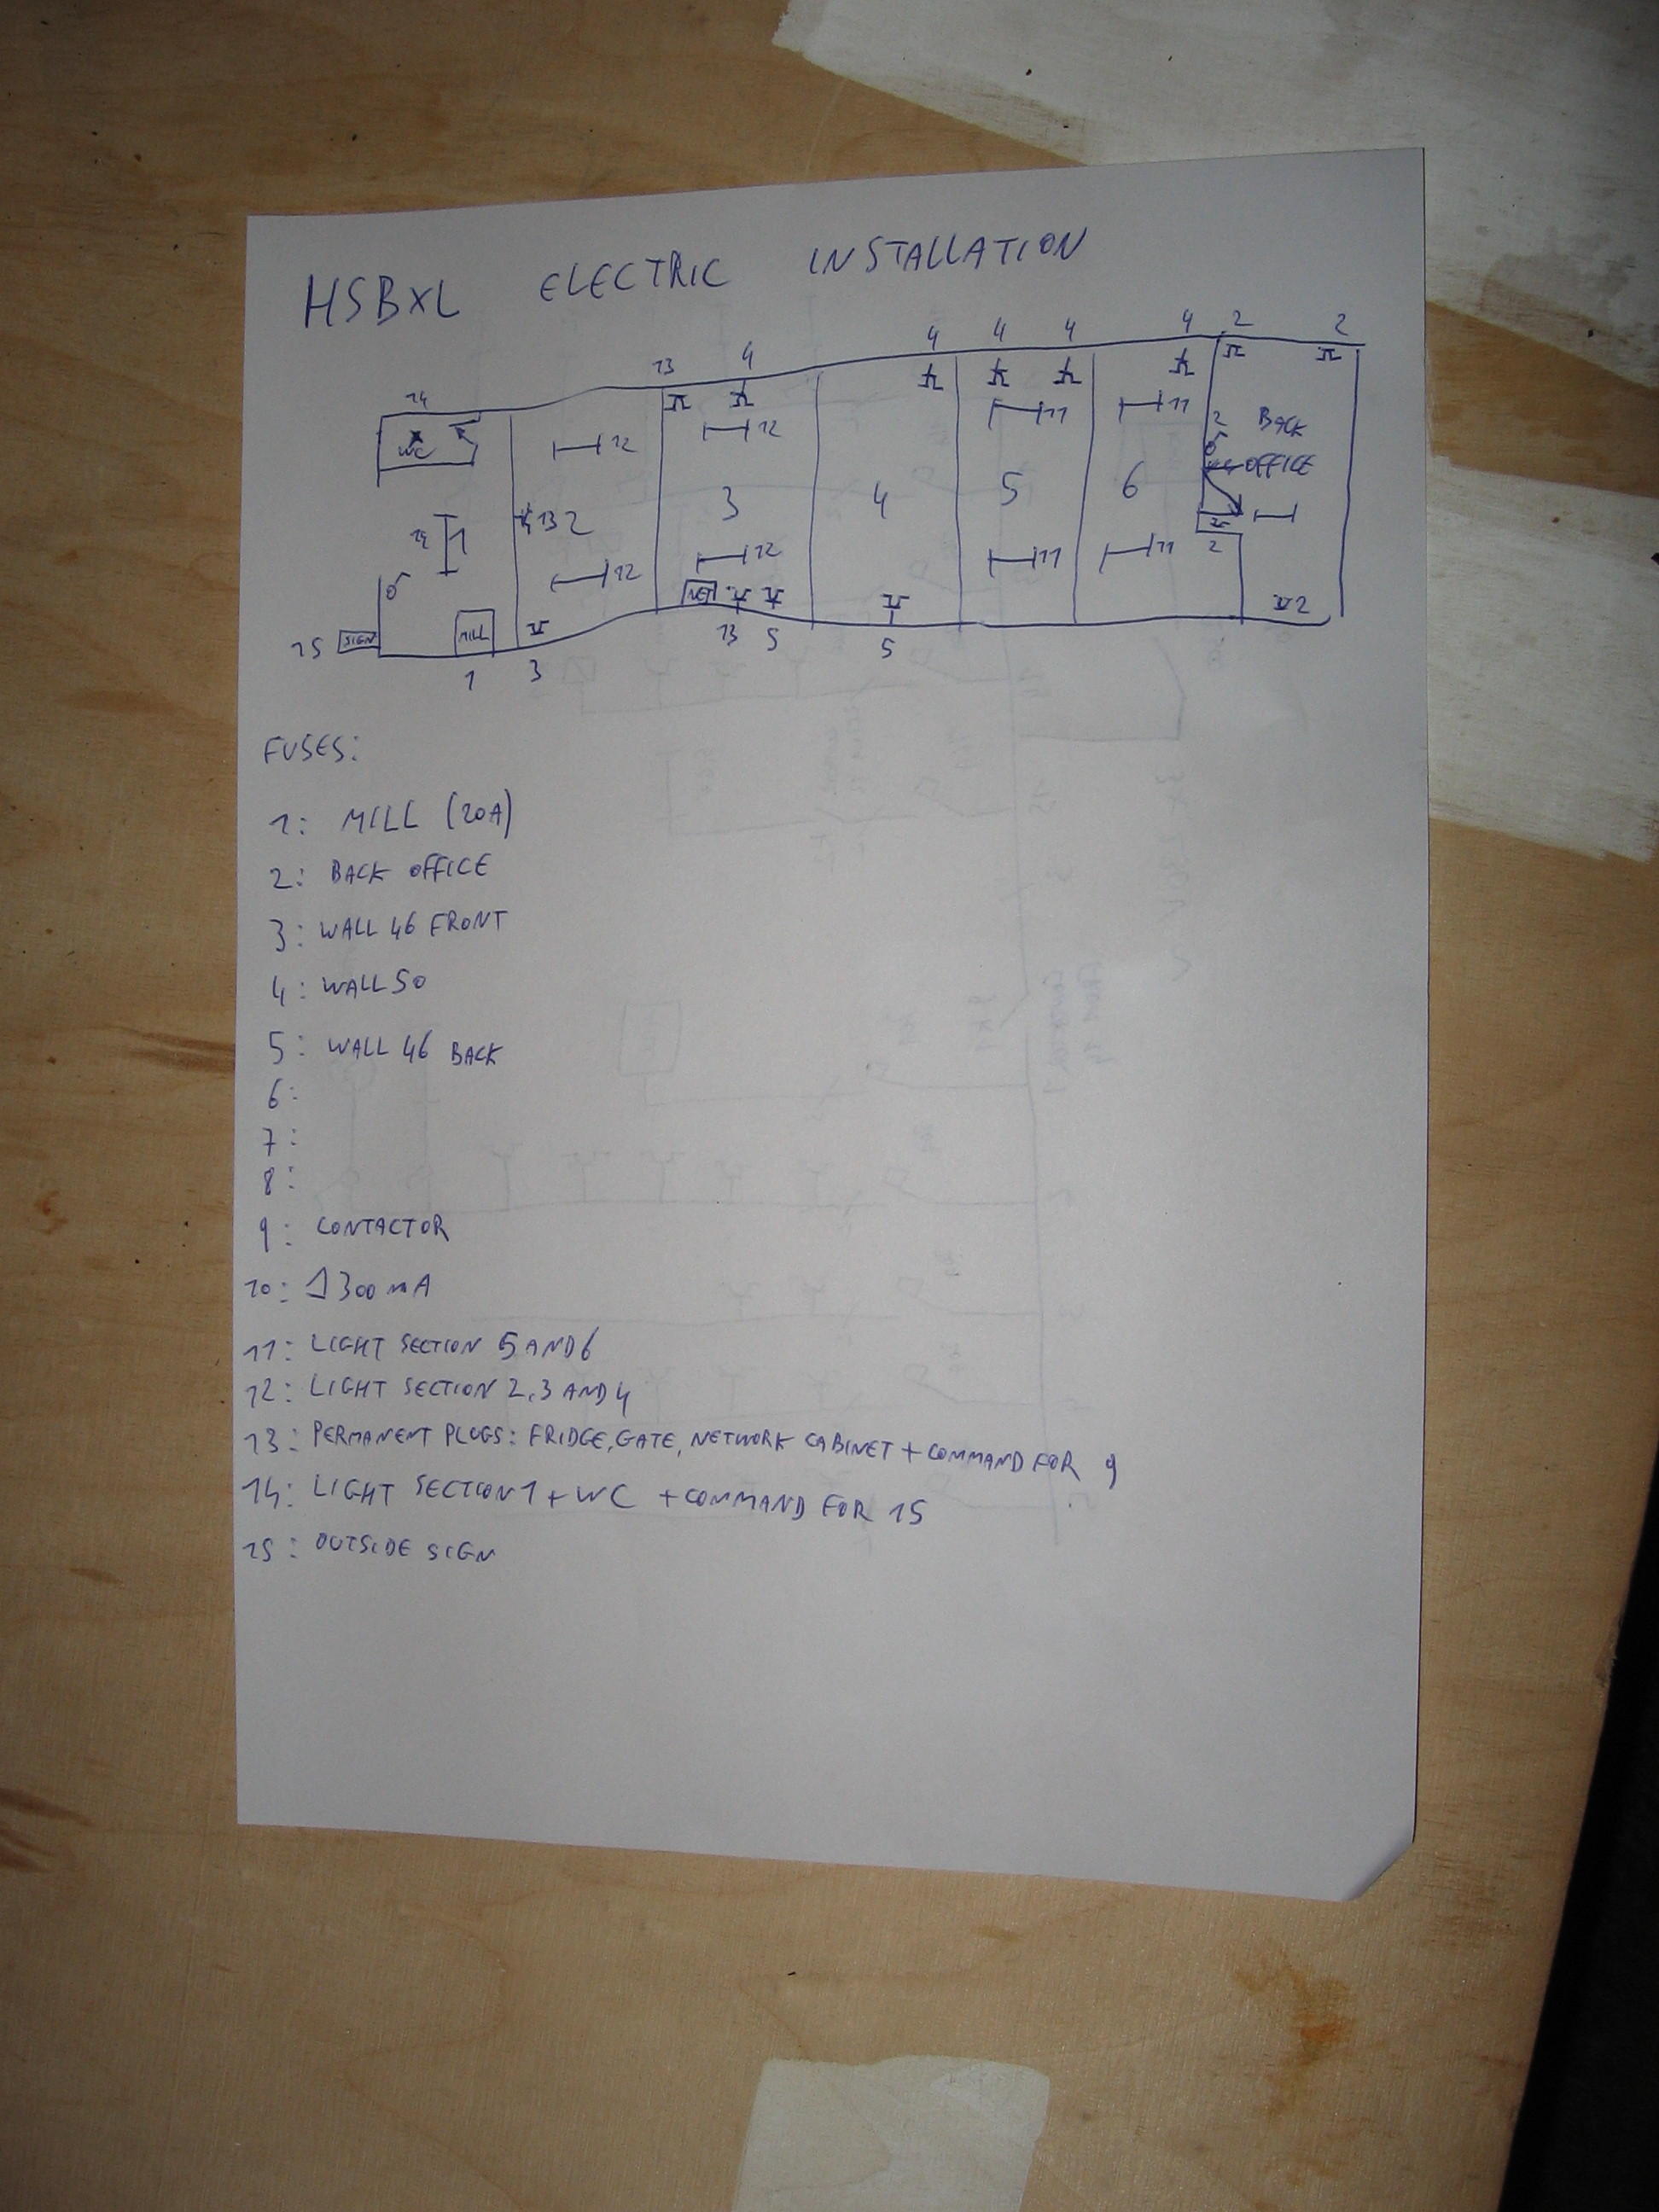 HSBXL ELECTRIC INSTALLATION
4 4 4 4 2 2
13 4
14
WC
12 12 11 11 2 BACK
OFFICE
13 2 3 4 5 6
14 1
12 12 11 11 2
NET 2
15 SIGN MILL
13 5 5
1 3
FUSES:
1: MILL (20A)
2: BACK OFFICE
3: WALL 46 FRONT
4: WALL 50
5: WALL 46 BACK
6:
7:
8:
9: CONTACTOR
10: Δ 300 mA
11: LIGHT SECTION 5 AND 6
12: LIGHT SECTION 2,3 AND 4
13: PERMANENT PLUGS: FRIDGE, GATE, NETWORK CABINET + COMMAND FOR 9
14: LIGHT SECTION 1 + WC + COMMAND FOR 15
15: OUTSIDE SIGN